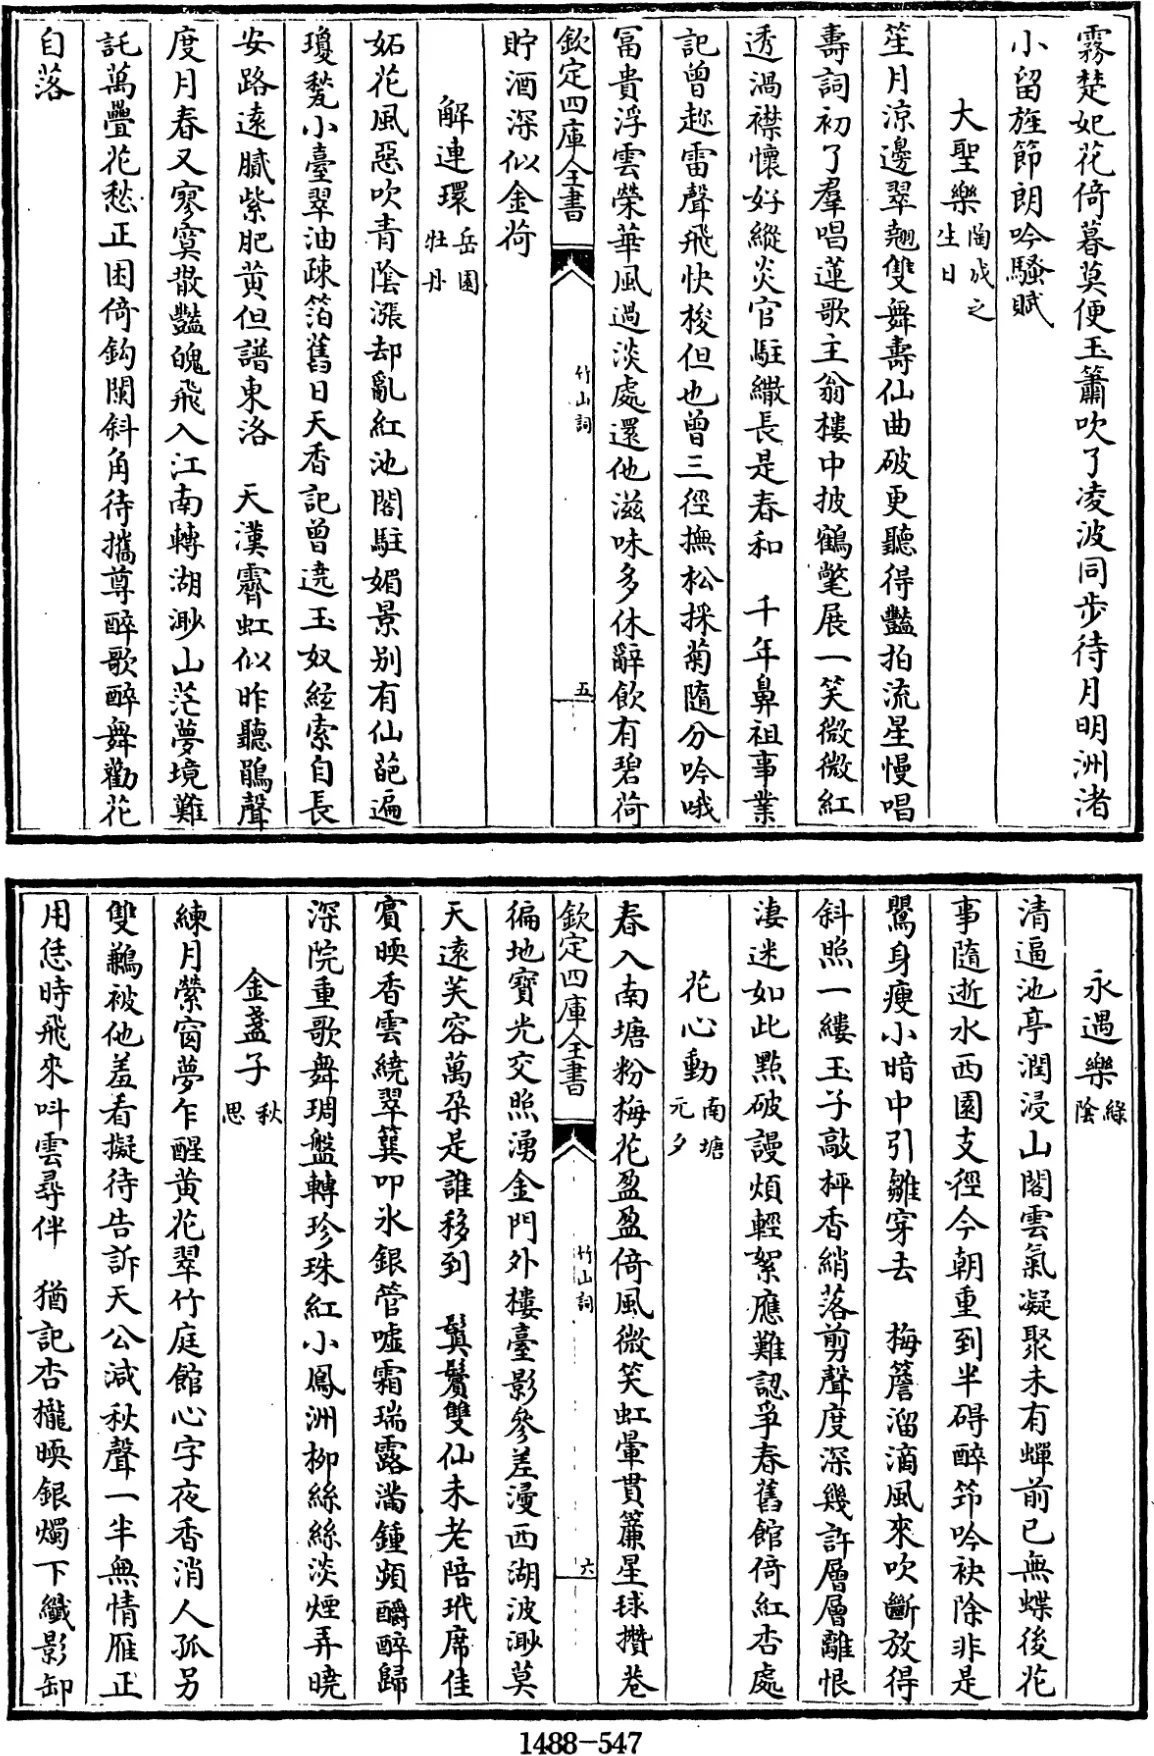 霧楚妃花倚暮莫便玉簫吹了凌波同步待月明洲渚
小留旌節朗吟騷賦
大聖樂 陶成之生日
笙月涼邊翠翹雙舞壽仙曲破更聽得豔拍流星慢唱
壽詞初了羣唱蓮歌主翁樓中披鶴氅展一笑微微紅
透渦襟懷好縱炎官駐繖長是春和 千年鼻祖事業
記曾趂雷聲飛快梭但也曾三徑撫松採菊隨分吟哦
富貴浮雲榮華風過淡處還他滋味多休辭飲有碧荷
欽定四庫全書 竹山詞 五
貯酒深似金荷
解連環 岳園牡丹
妬花風惡吹青陰漲却亂紅池閣駐媚景别有仙葩遍
瓊甃小臺翠油疎箔舊日天香記曾遶玉奴絃索自長
安路遠膩紫肥黄但譜東洛 天漢霽虹似昨聽鵑聲
度月春又寥寞散豔魄飛入江南轉湖渺山茫夢境難
託萬疊花愁正困倚鈎闌斜角待擕尊醉歌醉舞勸花
自落
永遇樂 綠陰
清逼池亭潤浸山閣雲氣凝聚未有蟬前已無蝶後花
事隨逝水西園支徑今朝重到半碍醉筇吟袂除非是
鸎身瘦小暗中引雛穿去 梅簷溜滴風來吹斷放得
斜照一縷玉子敲枰香綃落剪聲度深幾許層層離恨
淒迷如此點破謾煩輕絮應難認爭春舊館倚紅杏處
花心動 南塘元夕
春入南塘粉梅花盈盈倚風微笑虹暈貫簾星毬攢巷
欽定四庫全書 竹山詞 六
徧地寶光交照湧金門外樓臺影參差漫西湖波渺莫
天遠芙容萬朶是誰移到 鬒鬢雙仙未老陪玳席佳
賓暎香雲繞翠簨叩氷銀管噓霜瑞露滿鍾頻釂醉歸
深院重歌舞琱盤轉珍珠紅小鳳洲柳絲絲淡煙弄曉
金盞子 秋思
練月縈窗夢乍醒黄花翠竹庭館心字夜香消人孤另
雙鶼被他羞看擬待告訴天公減秋聲一半無情雁正
用恁時飛來呌雲尋伴 猶記杏櫳暎銀燭下纖影卸
1488-547